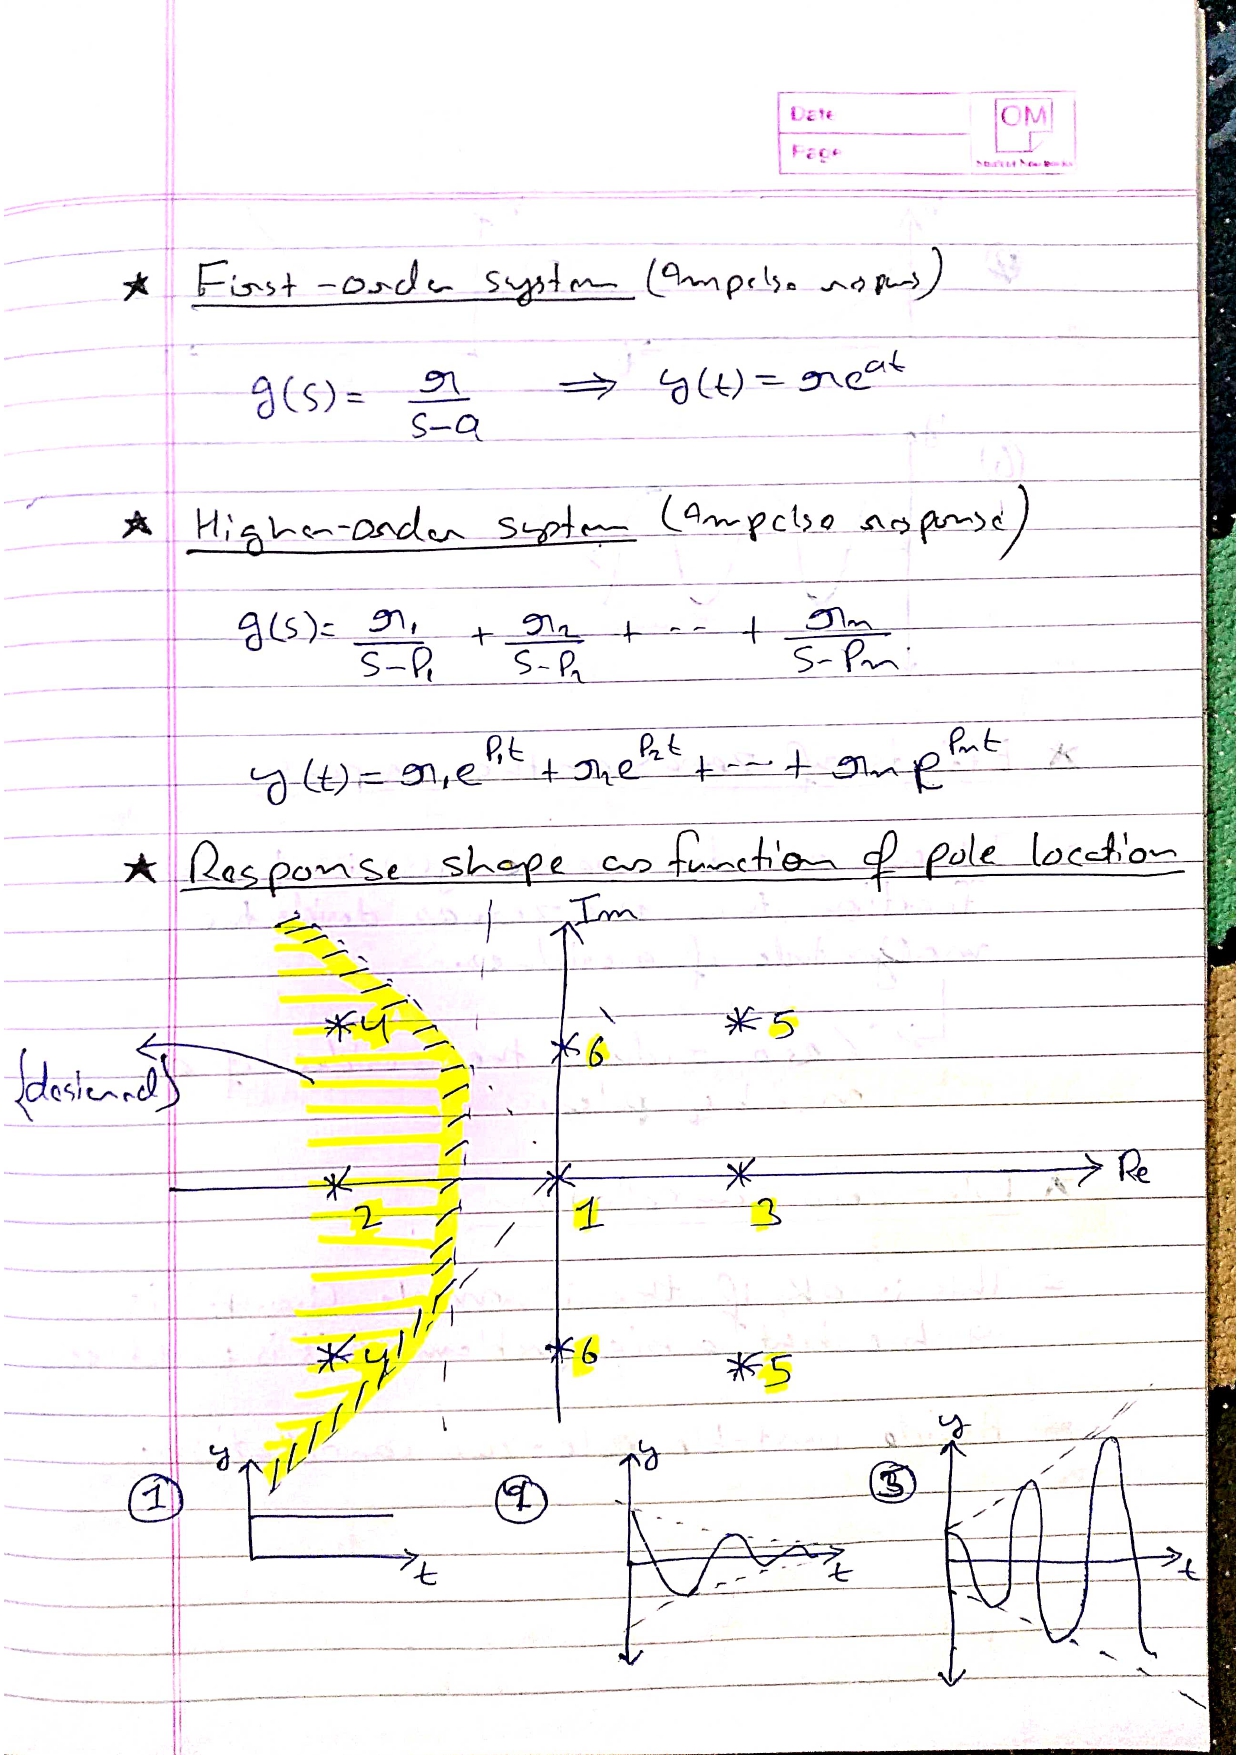 Date
OM
Page
★ First-order system (Impulse respons)
g(s) = r/(s-a) ⇒ y(t) = re^{at}
★ Higher-order system (Impulse response)
g(s) = r₁/(s-P₁) + r₂/(s-P₂) + -- + rₙ/(s-Pₙ)
y(t) = r₁e^{P₁t} + r₂e^{P₂t} + --- + rₙe^{Pₙt}
★ Response shape as function of pole location
Im
4
5
6
{desierred}
Re
2
1
3
4
6
5
y
y
y
①
③
t
t
t